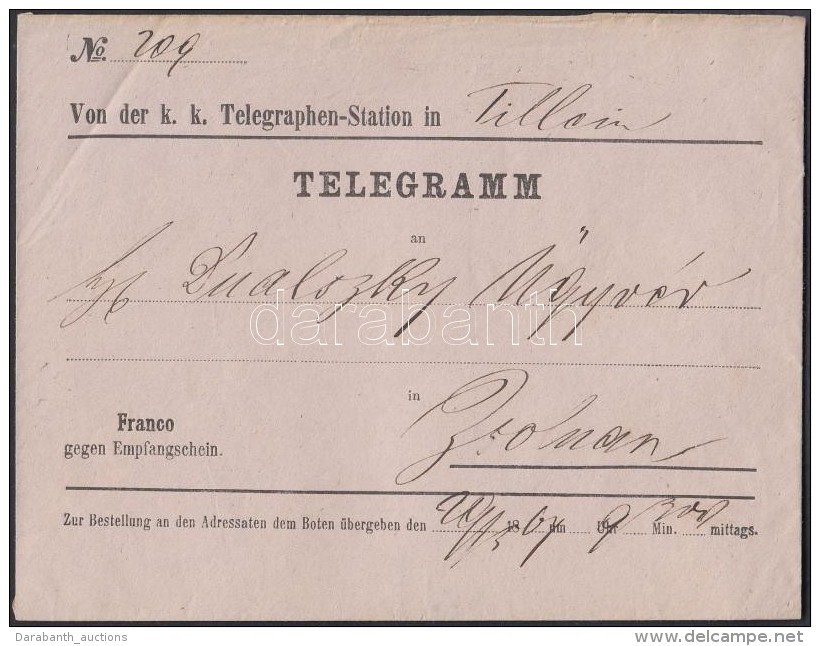 No. 209
Von der k. k. Telegraphen-Station in Sillein
TELEGRAMM
an
darabanth
in
Franco
gegen Empfangschein.
Zur Bestellung an den Adressaten dem Boten übergeben den 18 67 um 9 Uhr Min. mittags.
Darabanth_auctions
delcampe.net